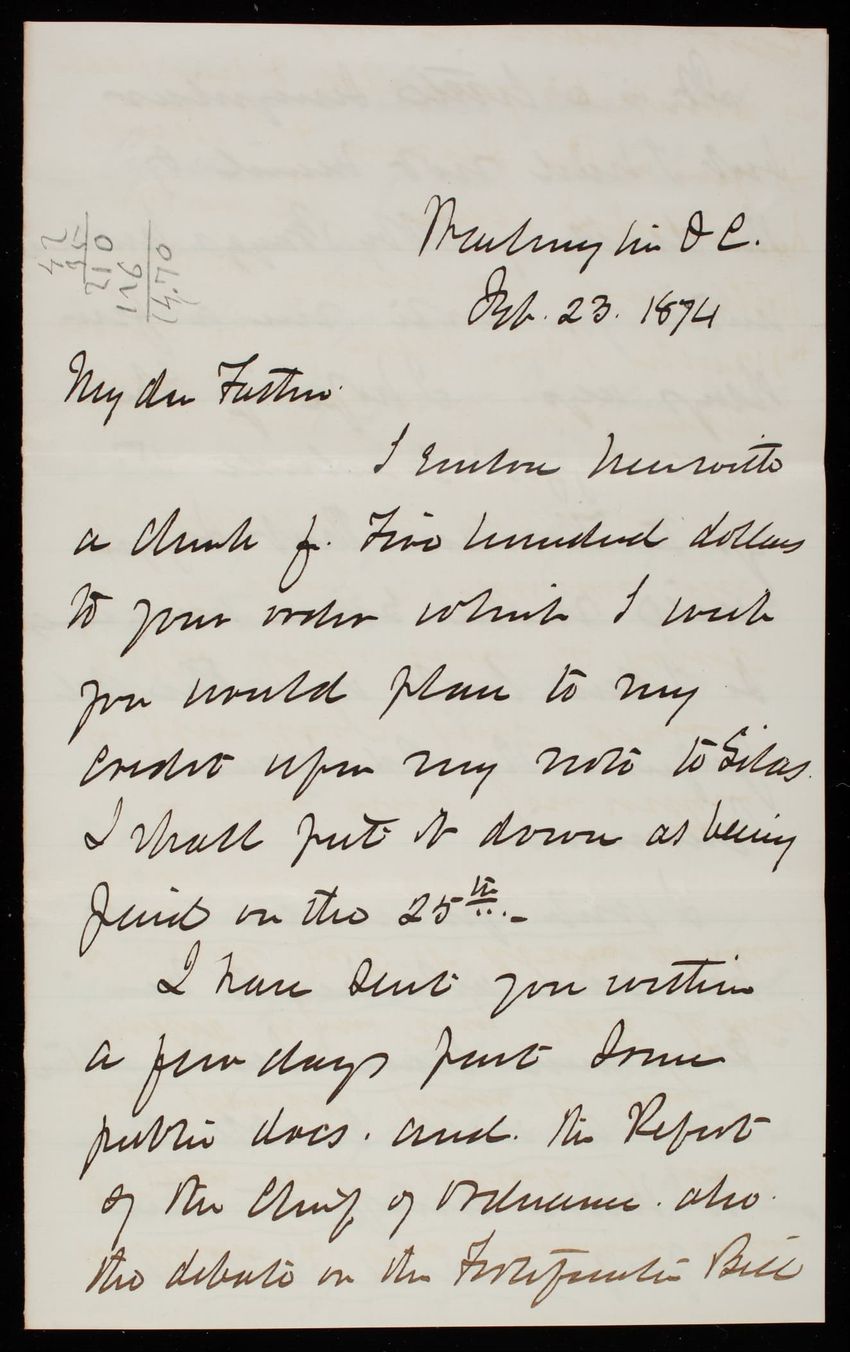 Washington D C.
Feb. 23. 1874
42
35
210
126
14.70
My dear Father
I enclose herewith
a check for Five hundred dollars
to your order which I wish
you would place to my
credit upon my note to Silas.
I shall put it down as being
paid on the 25th.-
I have sent you within
a few days past some
public docs. and. the Report
of the Chief of Ordnance. also
the debate on the Fortification Bill